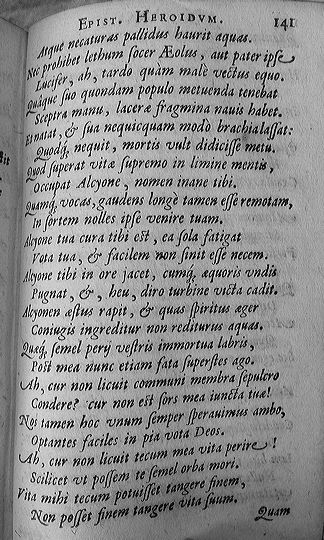 EPIST. HEROIDVM. 141
Atque necaturas pallidus haurit aquas.
Nec prohibet lethum socer Æolus, aut pater ipse
Lucifer, ah, tardo quàm malè vectus equo.
Quáque suo quondam populo metuenda tenebat
Sceptra manu, laceræ fragmina navis habet.
Et natat, & sua nequicquam modò brachia lassat:
Quodq́, nequit, mortis vult didicisse metu.
Quod superat vitæ supremo in limine mentis,
Occupat Alcyone, nomen inane tibi.
Quamq́, vocas, gaudens longè tamen esse remotam,
In sortem nolles ipse venire tuam.
Alcyone tua cura tibi est, ea sola fatigat
Vota tua, & facilem non sinit esse necem.
Alcyone tibi in ore jacet, cumq́, æquoris vndis
Pugnat, &, heu, diro turbine victa cadit.
Alcyonen æstus rapit, & quas spiritus æger
Coniugis ingreditur non rediturus aquas.
Quæq́, semel perij vestris immortua labris,
Post mea nunc etiam fata superstes ago.
Ah, cur non licuit communi membra sepulcro
Condere? cur non est sors mea iuncta tuæ!
Nos tamen hoc vnum semper speravimus ambo,
Optantes faciles in pia vota Deos.
Ah, cur non licuit tecum mea vita perire!
Scilicet vt possem te semel orba mori.
Vita mihi tecum potuisset tangere finem,
Non posset finem tangere vita suum.
Quam